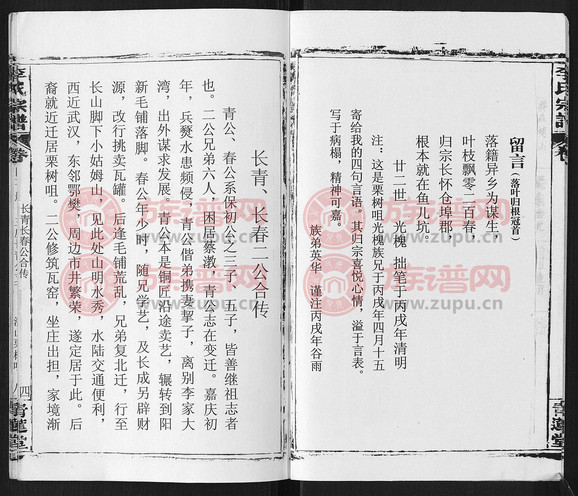 李氏宗谱
留言（落叶归根冠首）
落籍异乡为谋生，
叶枝飘零二百春，
归宗长怀仓埠郡，
根本就在鱼儿坑。
廿二世 光槐 拙笔于丙戌年清明
注：这是栗树咀光槐族兄于丙戌年四月十五
寄给我的四句言语，其归宗喜悦心情，溢于言表。
写于病榻，精神可嘉。
族弟英华 谨注丙戌年谷雨
青莲堂
长青、长春二公合传
青公、春公系保初公之三子、五子，皆善继祖志者
也。二公兄弟六人，困居蔡澉，青公志在变迁。嘉庆初
年，兵燹水患频侵，青公偕弟携妻挈子，离别李家大
湾，出外谋求发展。青公本是铜匠沿途卖艺，辗转到阳
新毛铺落脚。春公年少时，随兄学艺，及长成另辟财
源，改行挑卖瓦罐。后逢毛铺荒乱，兄弟复北迁，行至
长山脚下小姑姆山，见此处山明水秀，水陆交通便利，
西近武汉，东邻鄂樊，周边市井繁荣，遂定居于此。后
裔就近迁居栗树咀。二公修筑瓦窑，坐庄出担，家境渐
李氏宗谱
卷
长青长春公合传
四
青莲堂
族谱网
www.zupu.cn
族谱网
www.zupu.cn
族谱网
www.zupu.cn
族谱网
www.zupu.cn